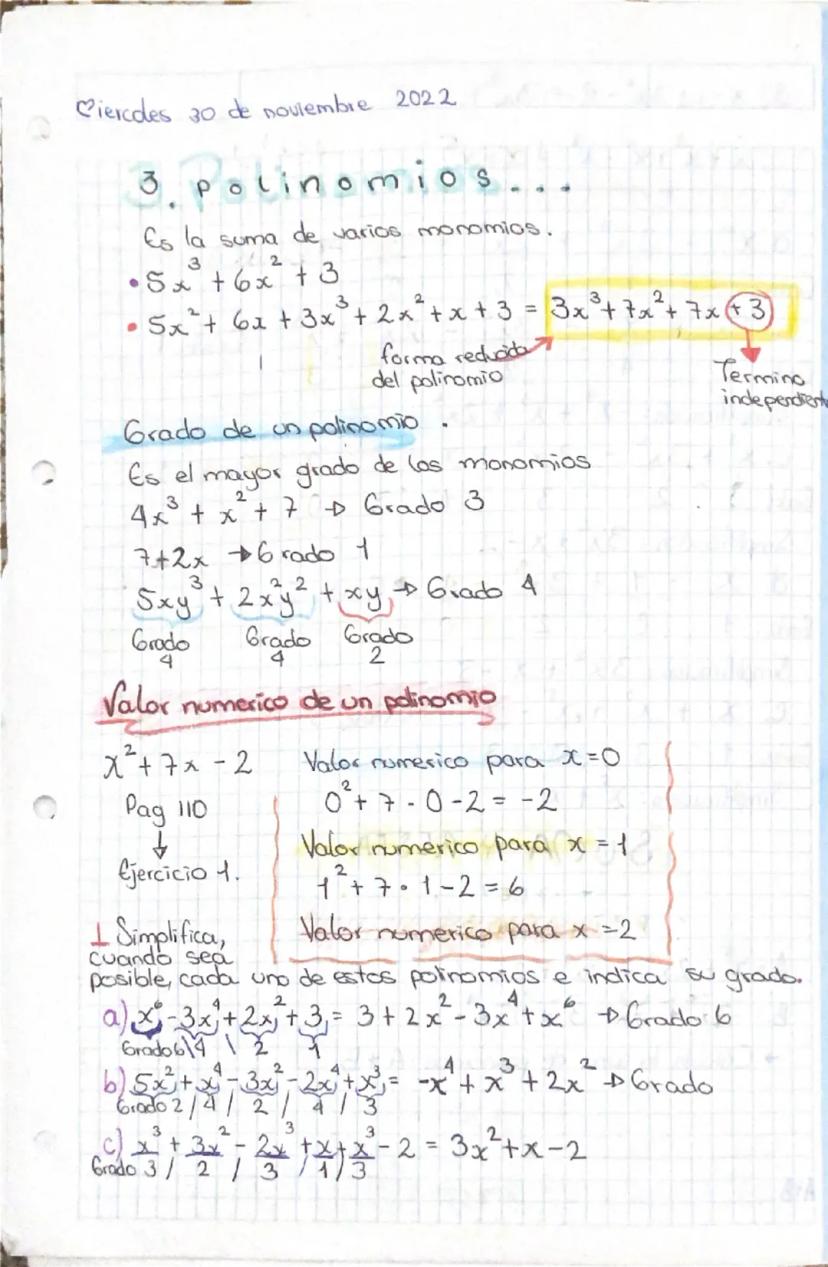 Miercoles 30 de noviembre 2022
3. Polinomios...
Es la suma de varios monomios.
• 5x³ + 6x² + 3
• 5x² + 6x + 3x³ + 2x² + x + 3 = 3x³ + 7x² + 7x + 3
forma reducida
del polinomio
Termino
independiente
Grado de un polinomio.
Es el mayor grado de los monomios
4x³ + x² + 7 → Grado 3
7+2x → Grado 1
5xy³ + 2x²y² + xy → Grado 4
Grado 4 Grado 4 Grado 2
Valor numerico de un polinomio
x² + 7x - 2 Valor numerico para x=0
Pag 110 0² + 7 · 0 - 2 = -2
↓ Valor numerico para x = 1
Ejercicio 1. 1² + 7 · 1 - 2 = 6
Valor numerico para x = 2
1 Simplifica,
cuando sea
posible, cada uno de estos polinomios e indica su grado.
a) x⁶ - 3x⁴ + 2x² + 3 = 3 + 2x² - 3x⁴ + x⁶ → Grado 6
Grado 6 \ 4 \ 2 1
b) 5x² + x⁴ - 3x² - 2x⁴ + x³ = -x⁴ + x³ + 2x² → Grado
Grado 2 / 4 / 2 / 4 / 3
c) x³ + 3x² - 2x³ + x + x³ - 2 = 3x² + x - 2
Grado 3 / 2 / 3 / 1 / 3